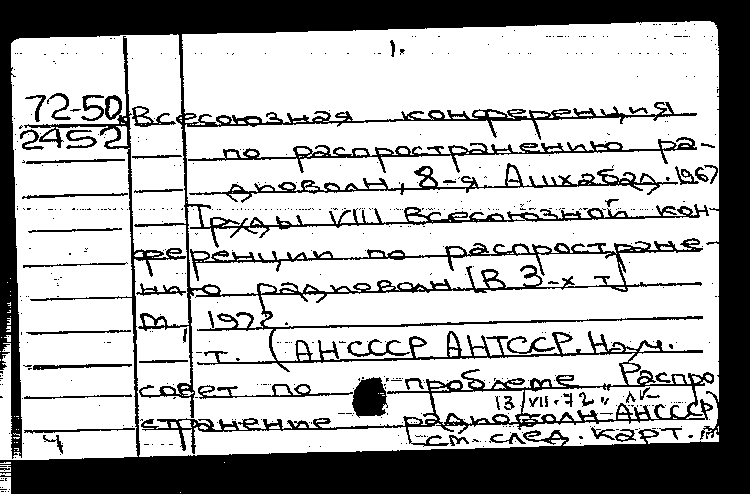 1.
72-50
2452
Всесоюзная конференция
по распространению ра-
диоволн, 8-я. Ашхабад. 1967
Труды VIII Всесоюзной кон-
ференции по распростране-
нию радиоволн [В 3-х т]
М., 1972.
т. (АНСССР АНТССР. Науч.
совет по проблеме „Распро
13/VII.72
странение радиоволн" АНСССР)
4 см. след. карт.